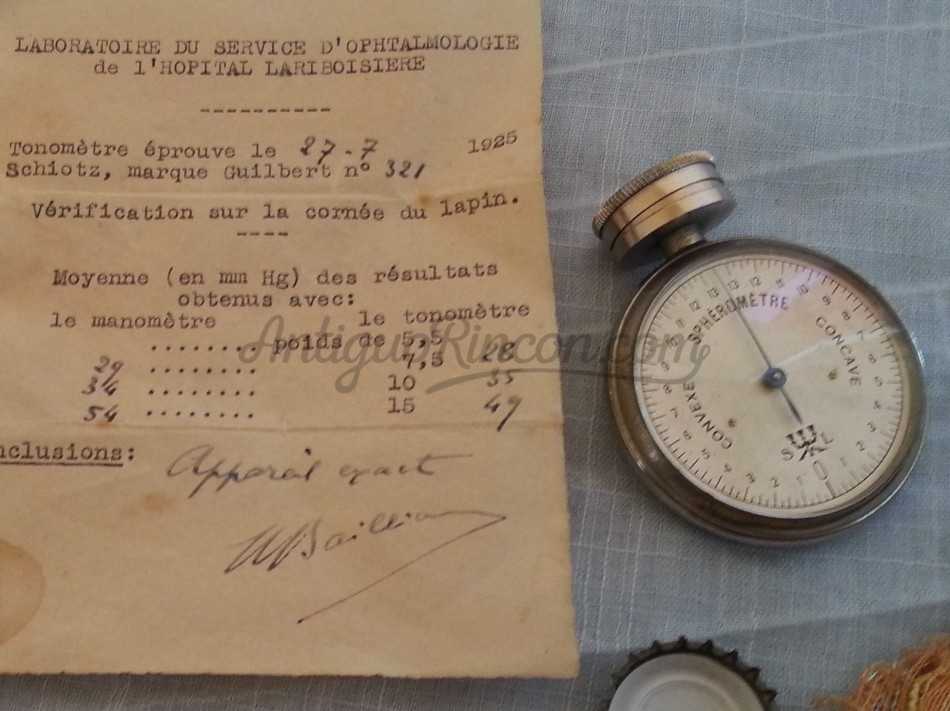 LABORATOIRE DU SERVICE D'OPHTALMOLOGIE
de l'HOPITAL LARIBOISIERE
----------
Tonomètre éprouve le 27-7 1925
Schiotz, marque Guilbert n° 321
Vérification sur la cornée du lapin.
----
Moyenne (en mm Hg) des résultats
obtenus avec:
le manomètre le tonomètre
....... poids de 5,5
29 ........ 7,5 28
34 ........ 10 35
54 ........ 15 49
nclusions: Appareil exact
AntiguoRincon.com
SPHÉROMÈTRE
CONVEXE
CONCAVE
S L
0